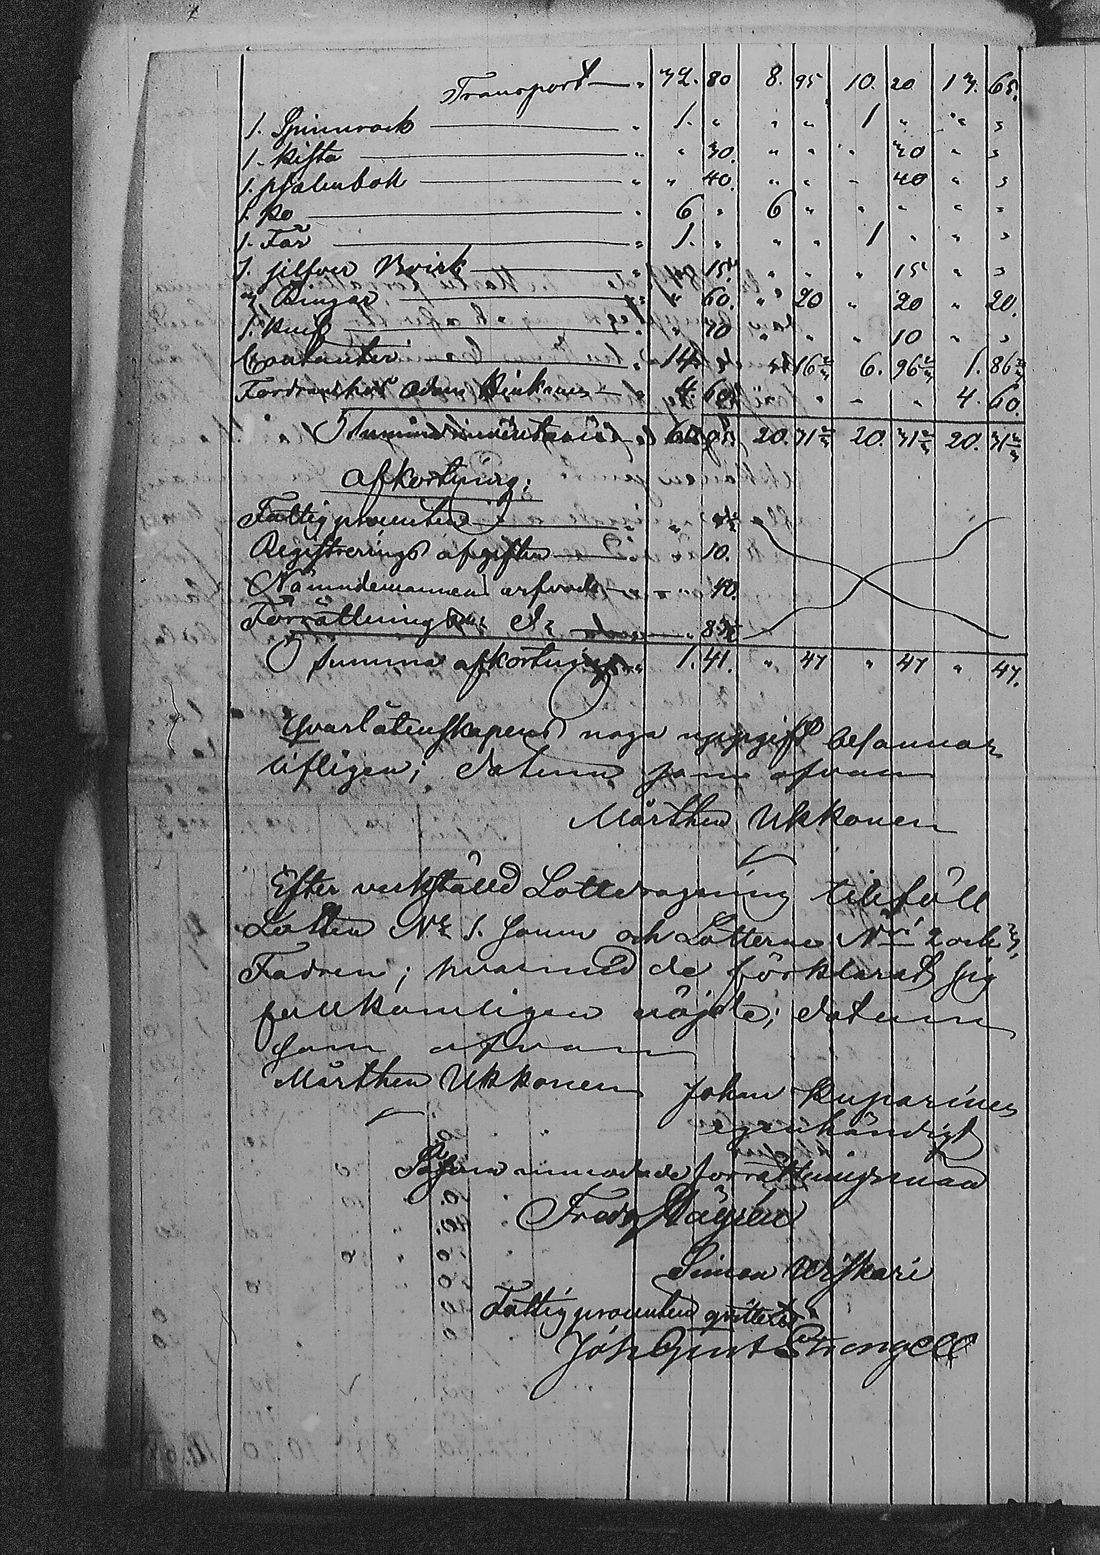 Transport — " 32. 80 8. 95 10. 20 13. 65.
1. Spinnrock — " 1. " " " 1 " " "
1. Kista — " " 30. " " " 30 " "
1. psalmbok — " " 40. " " " 40 " "
1. Ko — " 6 " 6 " " " " "
1. Får — " 1. " " " 1 " " "
1. silfver — " " 15. " " " 15 " "
3 Ringar — " " 60. " 20 " 20 " 20.
1. — " " 10 " " " 10 " "
Contanter — 14 " 16 2/3 6. 96 2/3 1. 86 2/3
Fordran hos Adam — 4. 60 " " " " 4. 60.
Summa inventarium 20. 31 2/3 20. 31 2/3 20. 31 2/3
Afkortning:
Fattigprocenten
Registrerings afgiften — 10.
Nämndemannens arfvode — 40.
Förrättnings
Summa afkortning " 1. 41. " 47 " 47 " 47.
Qvarlåtenskapens noga uppgift besannar
lifligen; datum som ofvan
Mårthen Ukkonen
Efter verkställd Lottdragning tillföll
Lotten No 1. Sonen och Lotterne No 2 och 3,
Fadren; hvarmed de förklarat sig
fullkomligen nöjde; datum
som ofvan
Mårthen Ukkonen Johan Kuparinen
egenhändigt
förrättningsman
Simon
Fattigprocenten qvitteras
Joh Gust Strengell